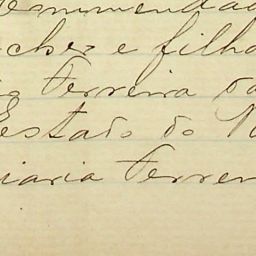 ommendad
cher e filho
Ferreira da
Estado do
iaria Ferrei